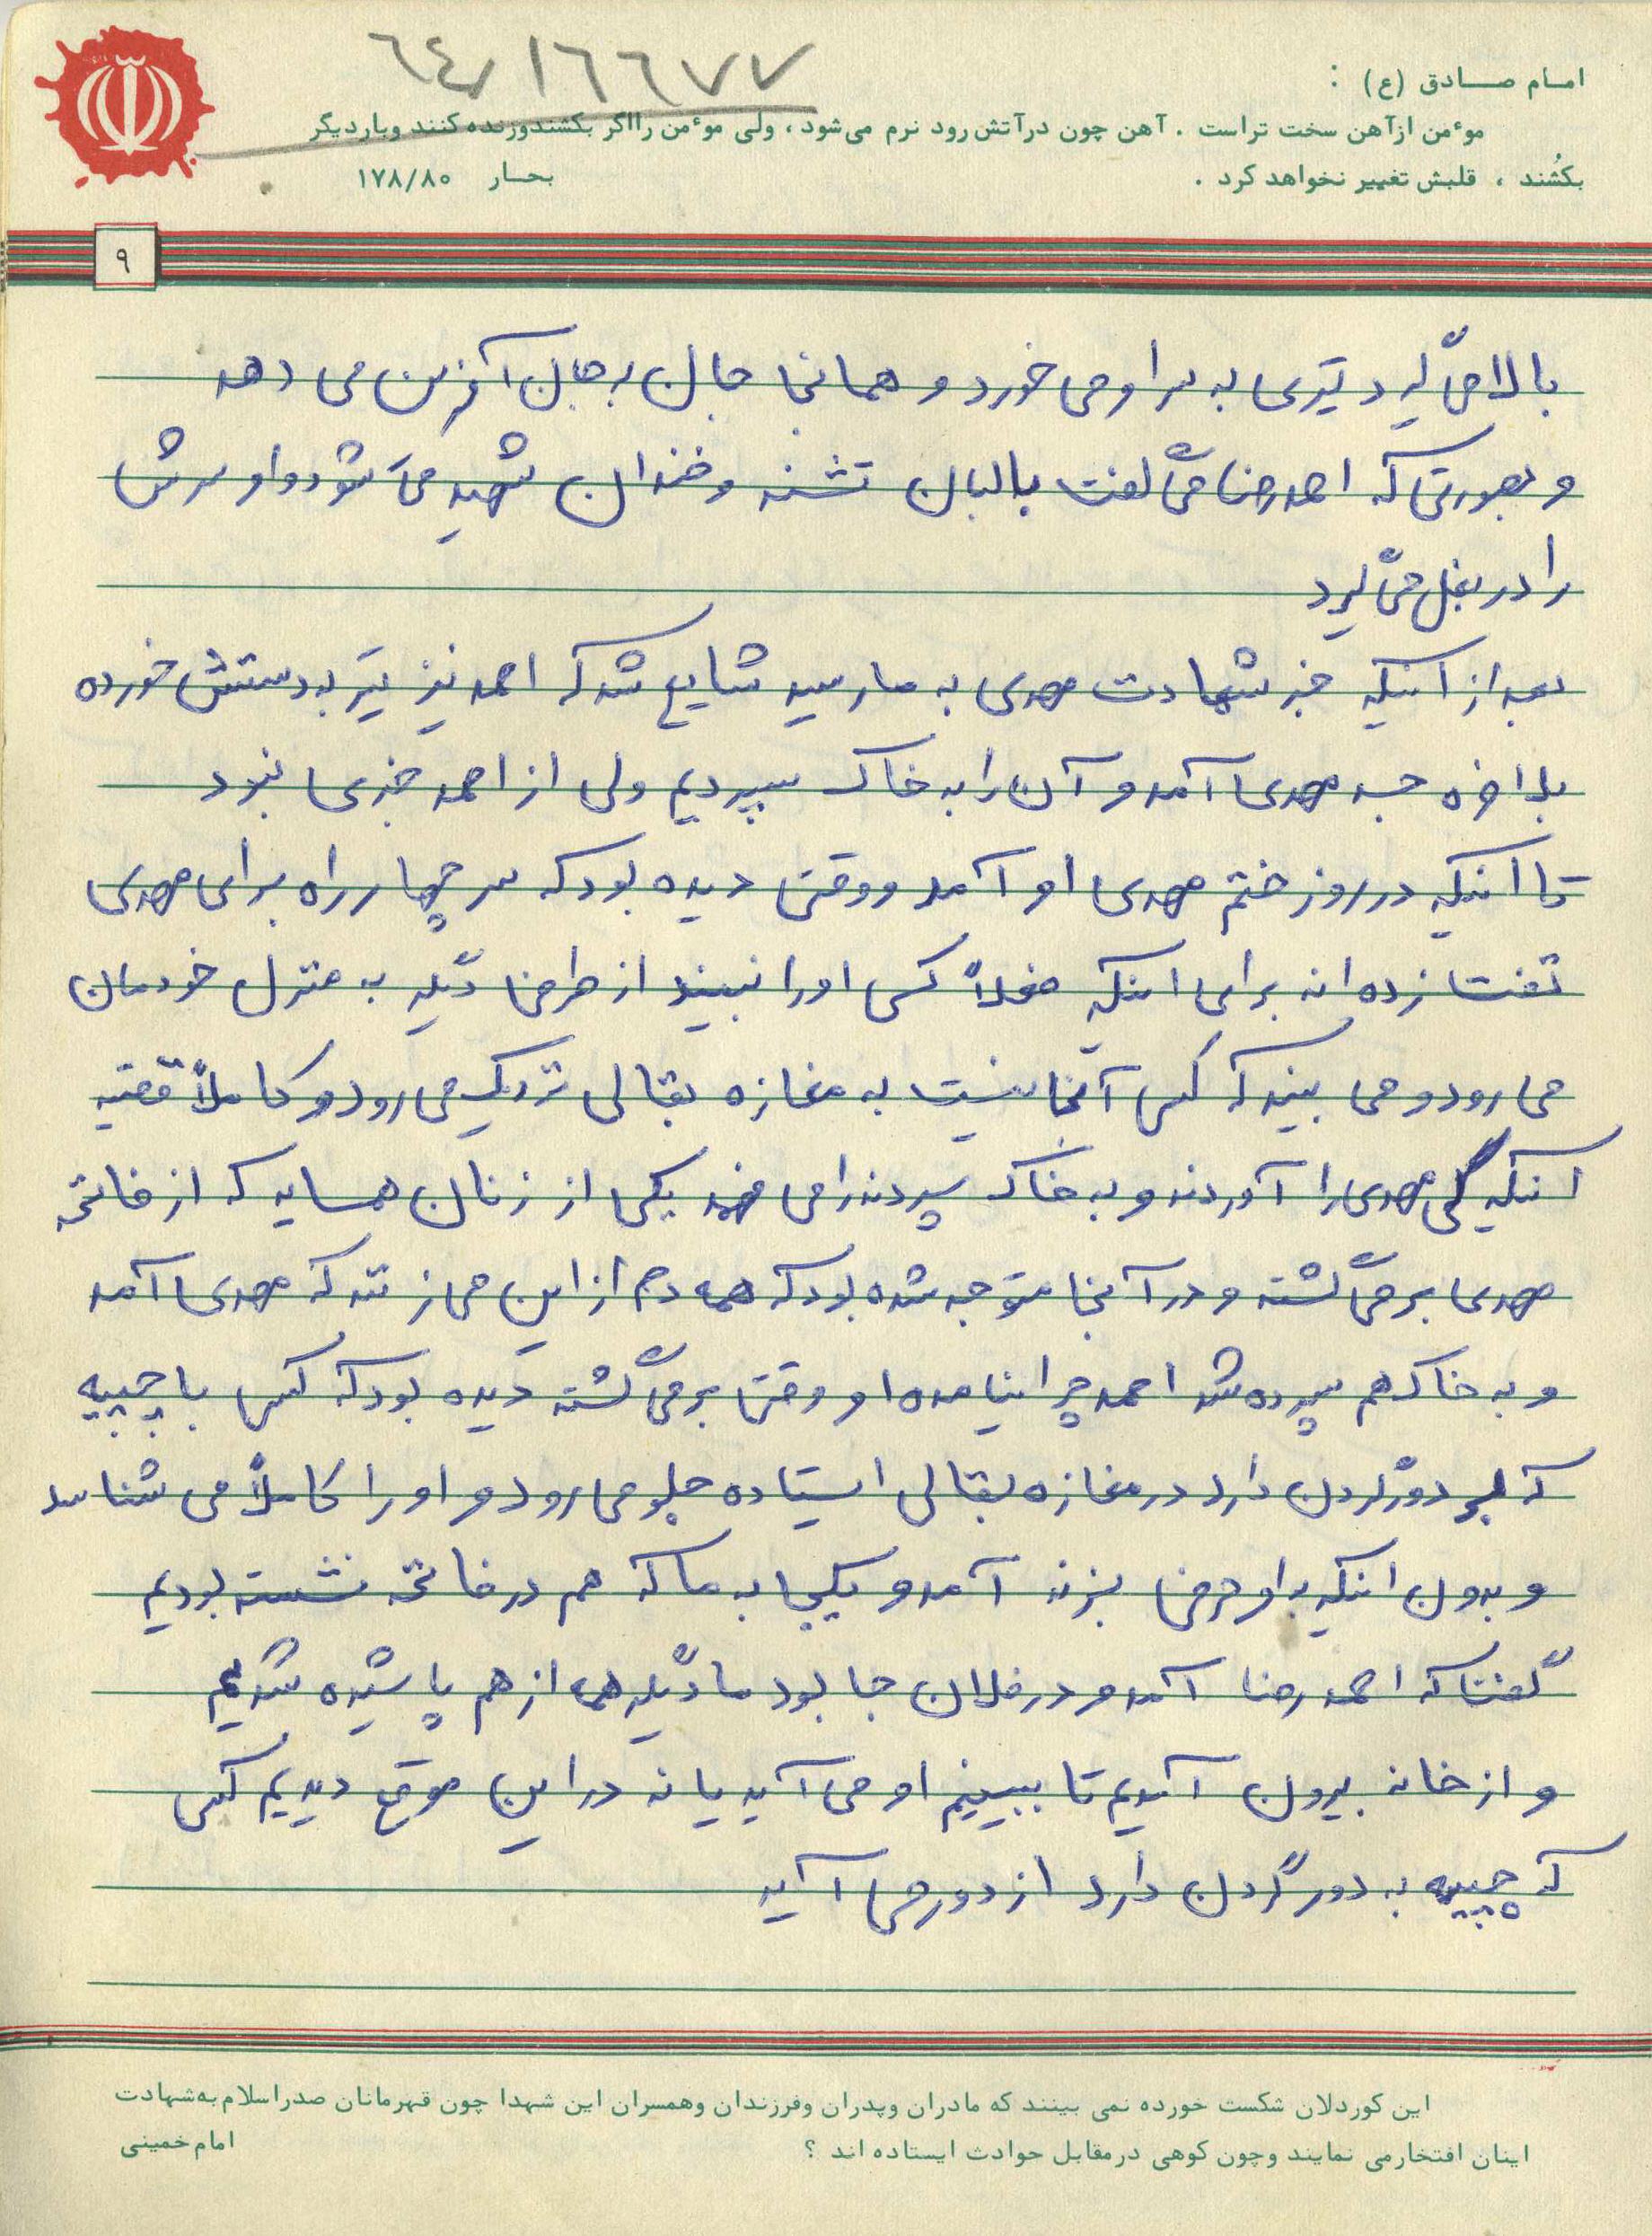 ٦٤/١٦٦٧٧
امام صادق (ع) :
موٴمن ازآهن سخت تراست . آهن چون درآتش رود نرم می‌شود ، ولی موٴمن رااگر بکشندوزنده کنند وباردیگر
بکُشند ، قلبش تغییر نخواهد کرد .
بحار ۱۷۸/۸۰
۹
بالا می‌گیرد تیری به سر او می خورد و همانجا جان به جان آفرین می دهد
و بصورتی که احمدرضا می‌گفت با لبان تشنه و خندان شهید می شود و او سرش
را در بغل می‌گیرد
بعد از اینکه خبر شهادت مهدی به ما رسید شایع شد که احمد نیز تیر به دستش خورده
بلاخره جسد مهدی آمد و آن را به خاک سپردیم ولی از احمد خبری نبود
تا اینکه در روز ختم مهدی او آمد و وقتی دیده بود که سر چهار راه برای مهدی
تفت زده اند برای اینکه فعلاً کسی او را نبیند از طرف دیگر به منزل خودمان
می رود و می بیند که کسی آنجا نیست به مغازه بقالی نزدیک می رود و کاملاً قضیه
اینکه کی مهدی را آوردند و به خاک سپردند را می فهمد یکی از زنان همسایه که از فاتحه
مهدی بر می‌گشته و در آنجا متوجه شده بود که همه دم از این می زنند که مهدی آمد
و به خاک هم سپرده شد احمد چرا نیامده او وقتی بر می‌گشته دیده بود که کسی با چپیه
که دور گردن دارد در مغازه بقالی ایستاده جلو می رود و او را کاملاً می شناسد
و بدون اینکه با او حرف بزند آمد و یکجا به ما که هم در فاتحه نشسته بودیم
گفت که احمدرضا آمد و در فلان جا بود ما دیگر همه از هم پاشیده شدیم
و از خانه بیرون آمدیم تا ببینیم او می آید یا نه در این موقع دیدیم کسی
که چپیه به دور گردن دارد از دور می آید
این کوردلان شکست خورده نمی بینند که مادران وپدران وفرزندان وهمسران این شهدا چون قهرمانان صدراسلام به‌شهادت
اینان افتخارمی نمایند وچون کوهی درمقابل حوادث ایستاده اند ؟
امام خمینی